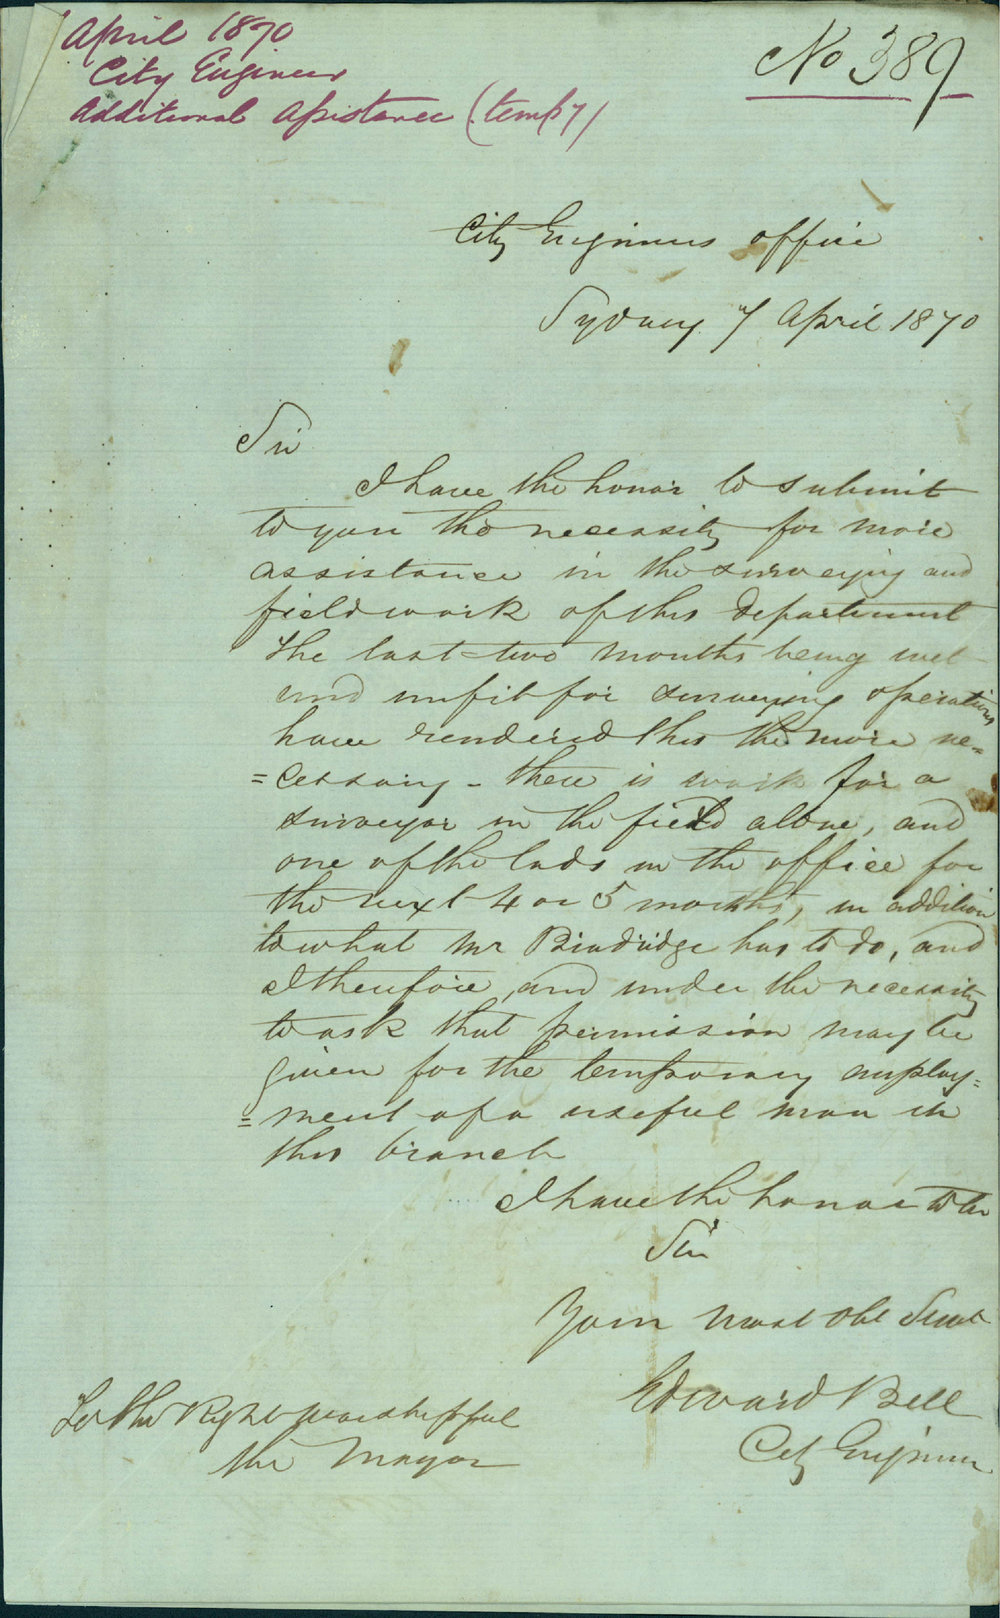 April 1870
City Engineer
Additional Assistance (tempy)
No 389
City Engineers office
Sydney 7 April 1870
Sir
I have the honor to submit
to you the necessity for more
assistance in the surveying and
field work of this department
the last two months being wet
and unfit for surveying operations
have rendered this the more ne=
=cessary - there is work for a
surveyor in the field alone, and
one of the lads in the office for
the next 4 or 5 months, in addition
to what Mr has to do, and
I therefore, am under the necessity
to ask that permission may be
given for the temporary employ=
=ment of a useful man in
this branch
I have the honor to be
Sir
Your most obt Servt
Edward Bell
City Engineer
To the Right worshipful
the Mayor